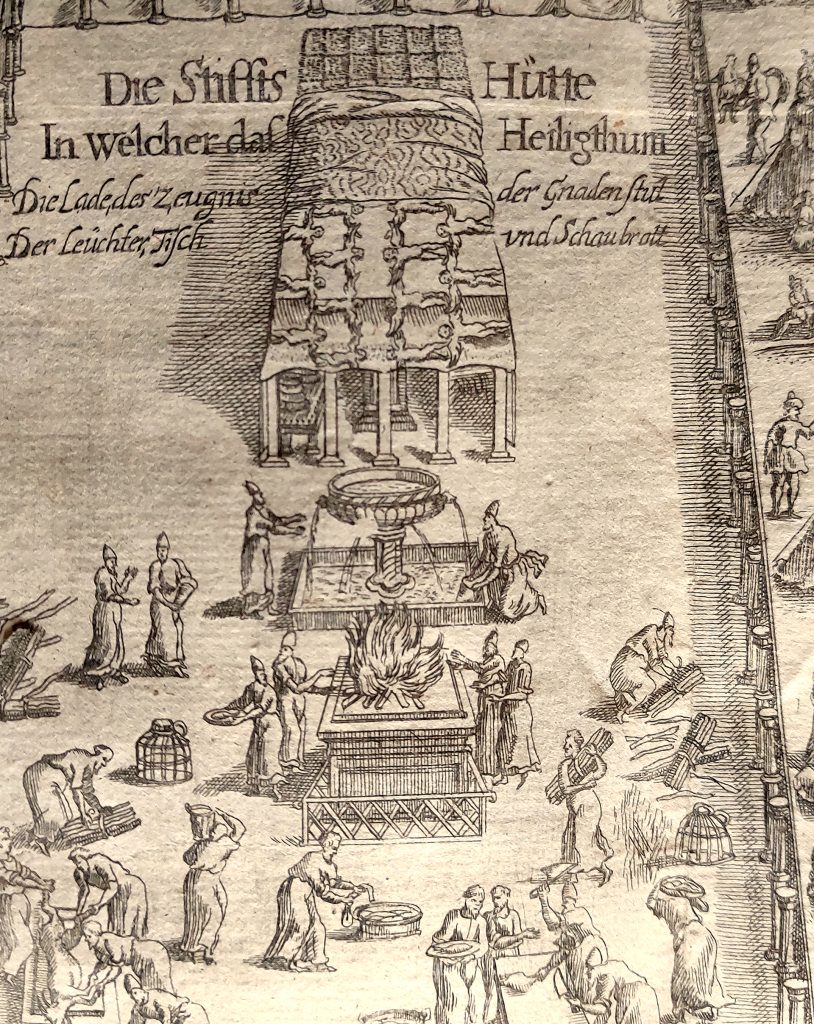 Die Stiffts Hütte
In welcher das Heiligthum
Die Lade, des Zeugnis der Gnaden stul
Der Leüchter, Tisch vnd Schaubrott